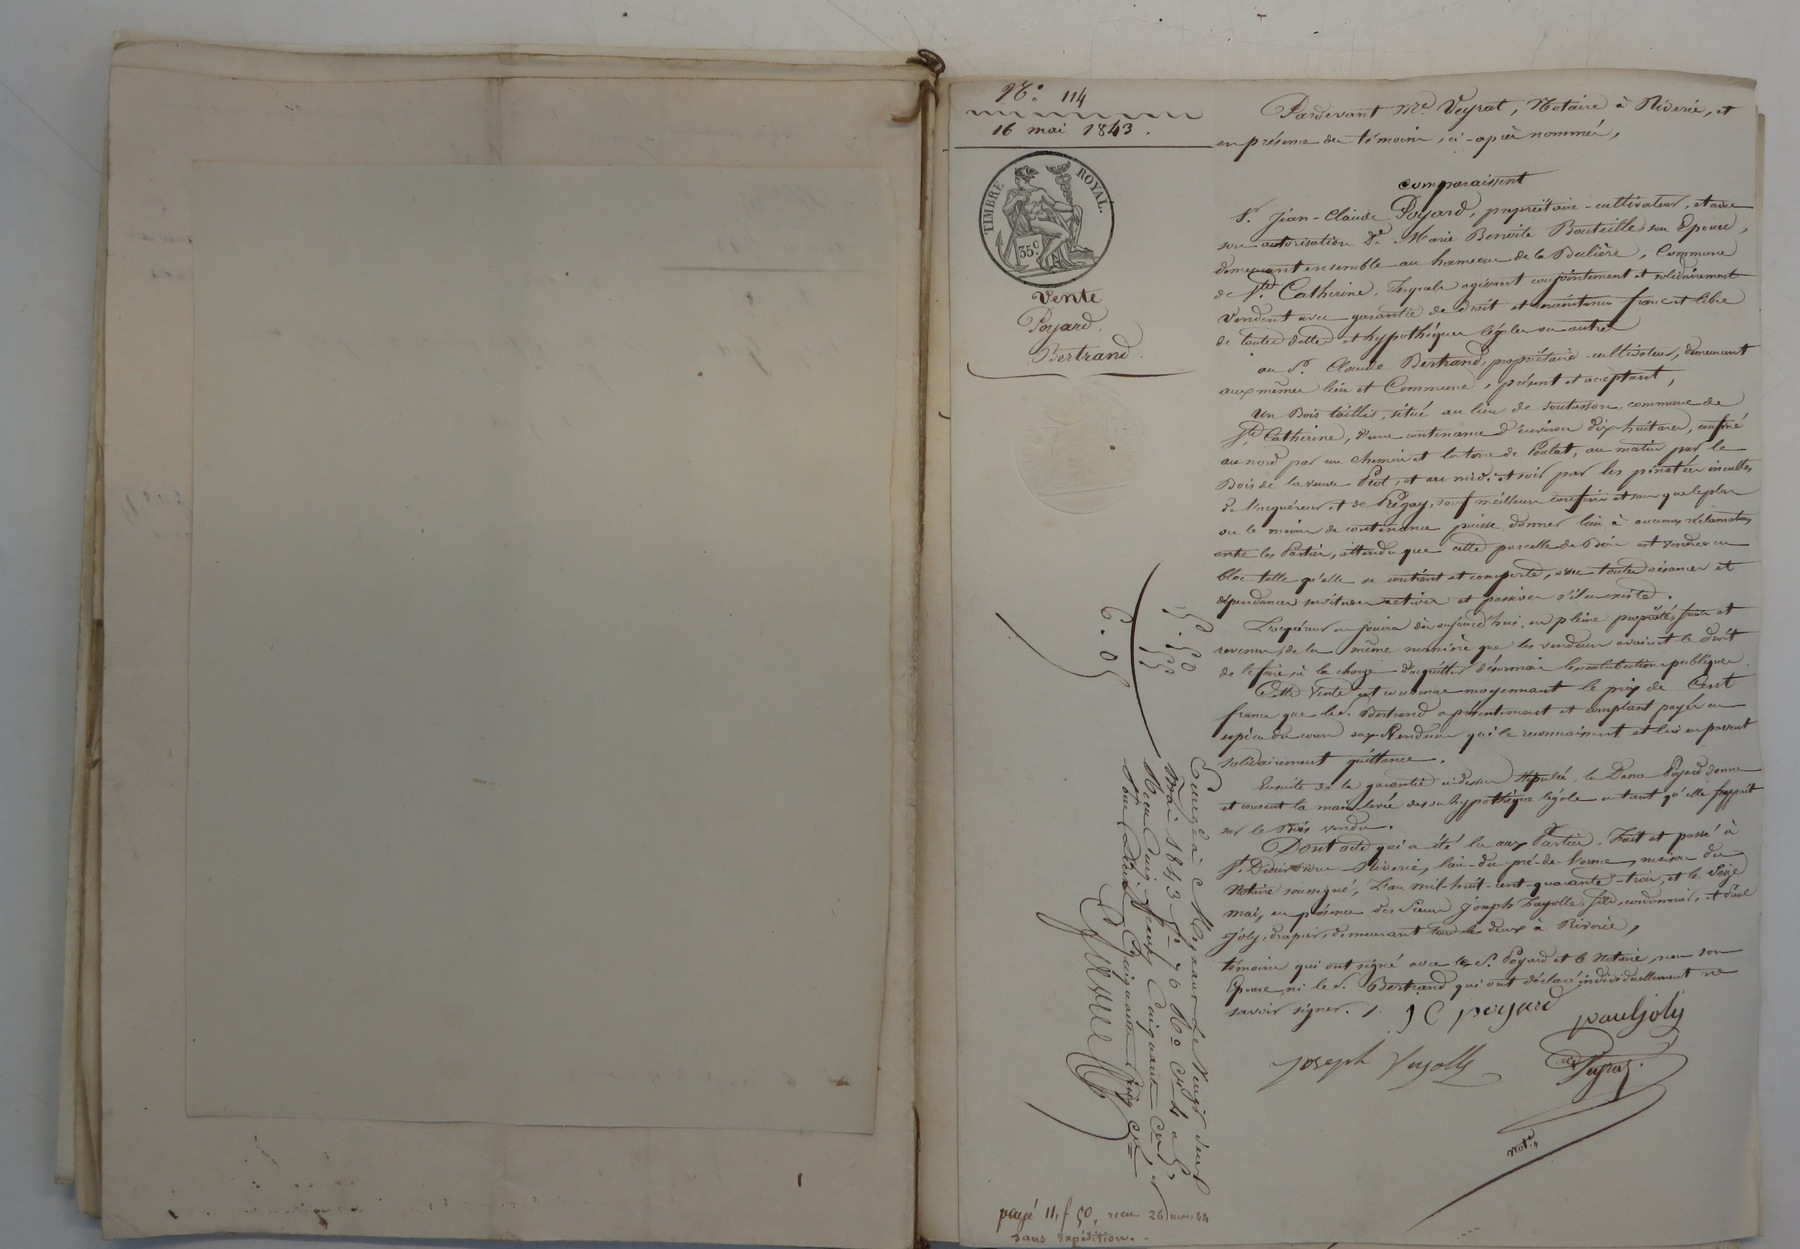 N.° 114
16 mai 1843.
TIMBRE ROYAL.
35 c
Vente
Poyard.
Bertrand.
5. 50
55
6. 05
Enreg.é à Mornant le Vingt deux
Mai 1843 f.° 70 R.° C.es 4 a 5
Reçu Cinq francs Cinquante C.es et
pour Cinquante Cinq C.es
payé 11 f 50, reçu 26
sans Expédition.
Pardevant M.e Veyrat, Notaire à Riverie, et
en présence des témoins, ci-après nommés,
Comparaissent
S.r Jean-Claude Poyard, propriétaire-cultivateur, et avec
son autorisation D.e Marie Benoite Bouteille son Epouse,
demeurant ensemble au hameau de la , Commune
de S.te Catherine, Lesquels agissant conjointement et solidairement
Vendent avec garantie de droit et maintenue franc et libre
de toutes dettes et hypothèques légales ou autres
au S.r Claude Bertrand, propriétaire-cultivateur, demeurant
aux mêmes lieu et Commune, présent et acceptant,
Un Bois taillis, situé au lieu de , commune de
S.te Catherine, d'une contenance d'environ dix-huit ares, confiné
au nord par un chemin et la terre de Poulat, au matin par le
Bois de la veuve , et au midi et soir par les pinatées incultes
de l'acquéreur et de , sauf meilleurs confins et sans que le plus
ou le moins de contenance puisse donner lieu à aucunes réclamations
entre les Parties, attendu que cette parcelle de Bois est vendue en
bloc telle qu'elle se contient et comporte, avec toutes aisances et
dépendances servitudes actives et passives s'il en existe.
L'acquéreur en jouira dès aujourd'hui, en pleine propriété, fruits et
revenus, de la même manière que les vendeurs avaient le droit
de le faire, à la charge d'acquitter désormais les contributions publiques.
Cette Vente est convenue moyennant le prix de Cent
francs que le S.r Bertrand a présentement et comptant payés en
espèces de cours aux Vendeurs qui le reconnaissent et lui en passent
solidairement quittance.
Ensuite de la garantie ci-dessus stipulée, la Dame Poyard donne
et consent la main levée de son hypothèque légale en tant qu'elle frappait
sur le Bois vendu.
Dont acte qui a été lu aux Parties. Fait et passé à
S.t Didier sous Riverie, lieu du pré-de-, maison du
Notaire soussigné, L'an mil-huit-cent-quarante-trois, et le Seize
mai, en présence des Sieurs Joseph Fayolle fils, cordonnier, et Paul
Joly, drapier, demeurant tous les deux à Riverie,
témoins qui ont signé avec le S.r Poyard et le Notaire, non son
Epouse, ni le S.r Bertrand qui ont déclaré individuellement ne
savoir signer. /.
J C poyard
paul joly
Joseph Fayolle
Veyrat
not.re